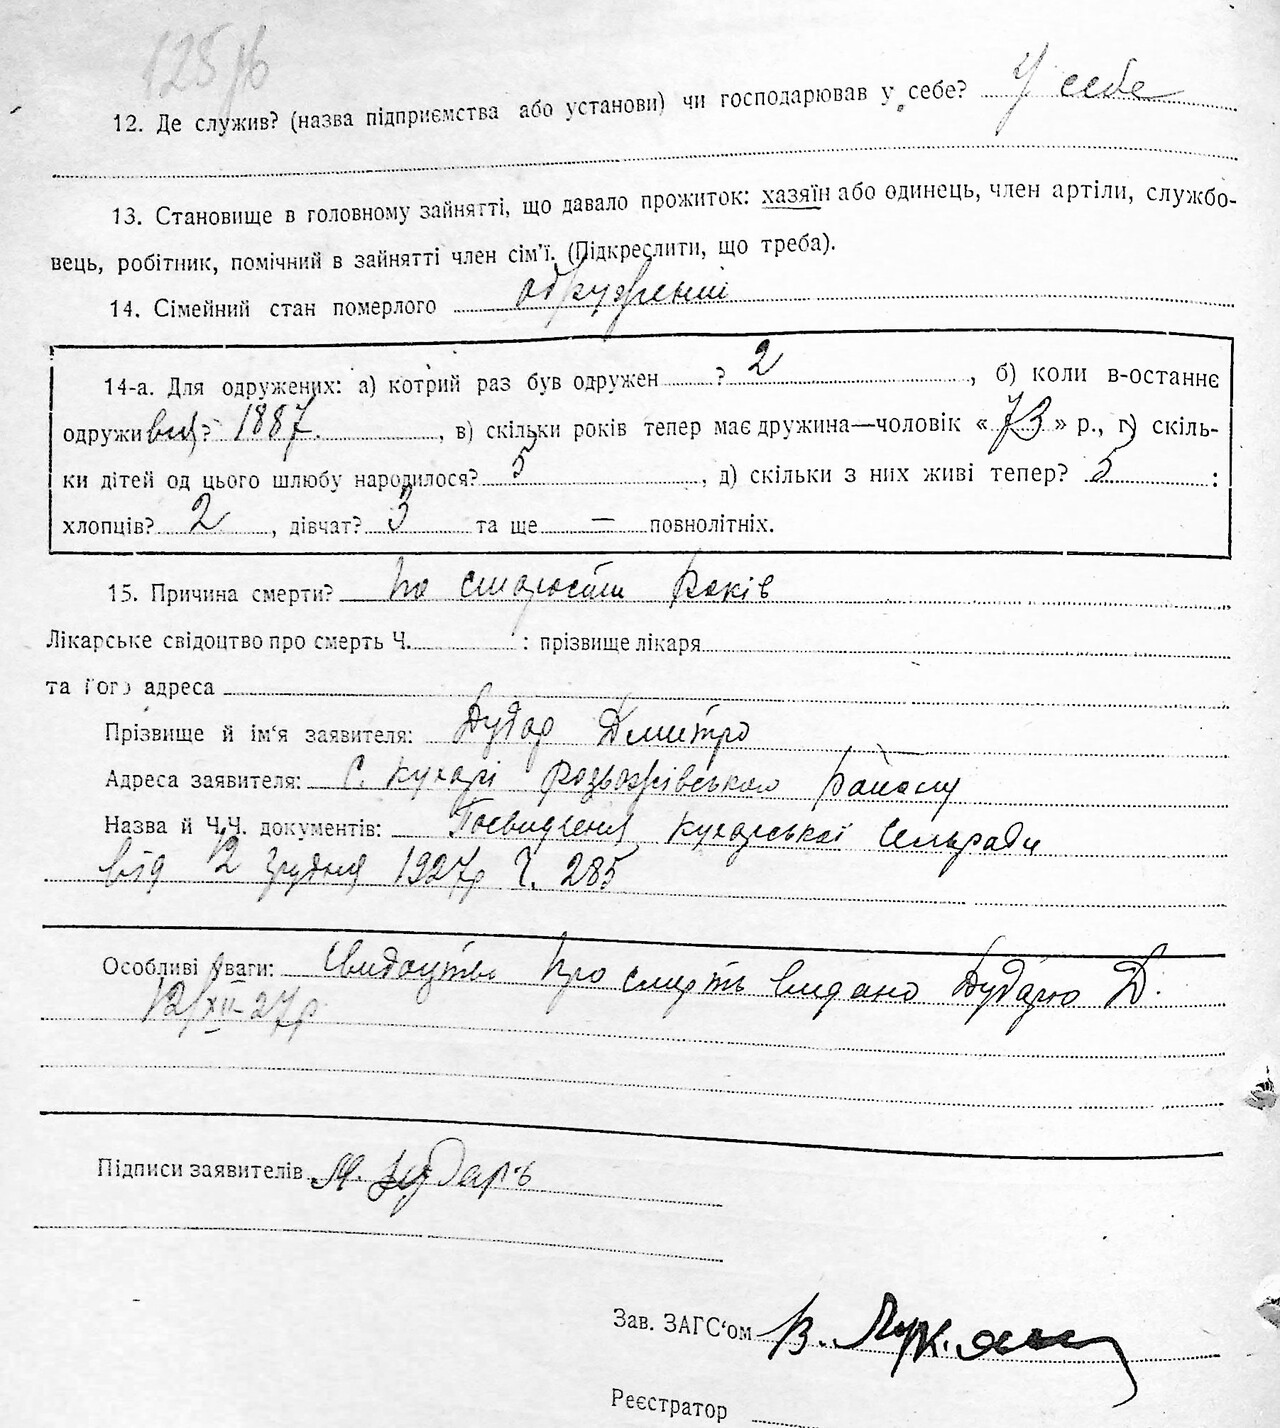 125
12. Де служив? (назва підприємства або установи) чи господарював у себе? У себе
13. Становище в головному зайнятті, що давало прожиток: хазяїн або одинець, член артіли, службо-
вець, робітник, помічний в зайнятті член сім'ї. (Підкреслити, що треба).
14. Сімейний стан померлого одружений
14-а. Для одружених: а) котрий раз був одружен ? 2 , б) коли в-останнє
одруживця? 1887 , в) скільки років тепер має дружина—чоловік « 73 » р., г) скіль-
ки дітей од цього шлюбу народилося? 5 , д) скільки з них живі тепер? 5 :
хлопців? 2 , дівчат? 3 та ще — повнолітніх.
15. Причина смерти? По старости років
Лікарське свідоцтво про смерть Ч. : прізвище лікаря
та його адреса
Прізвище й ім'я заявителя: Дудар Дмитро
Адреса заявителя: С. Кухарі Розважівського Району
Назва й Ч.Ч. документів: Посвидченя Кухарської Сельради
від 12 Грудня 1927р Ч. 285
Особливі уваги: Свидоцтво про смерть видано Дударю Д.
12/XII-27р
Підписи заявителів Дударь
Зав. ЗАГС'ом В.
Реєстратор